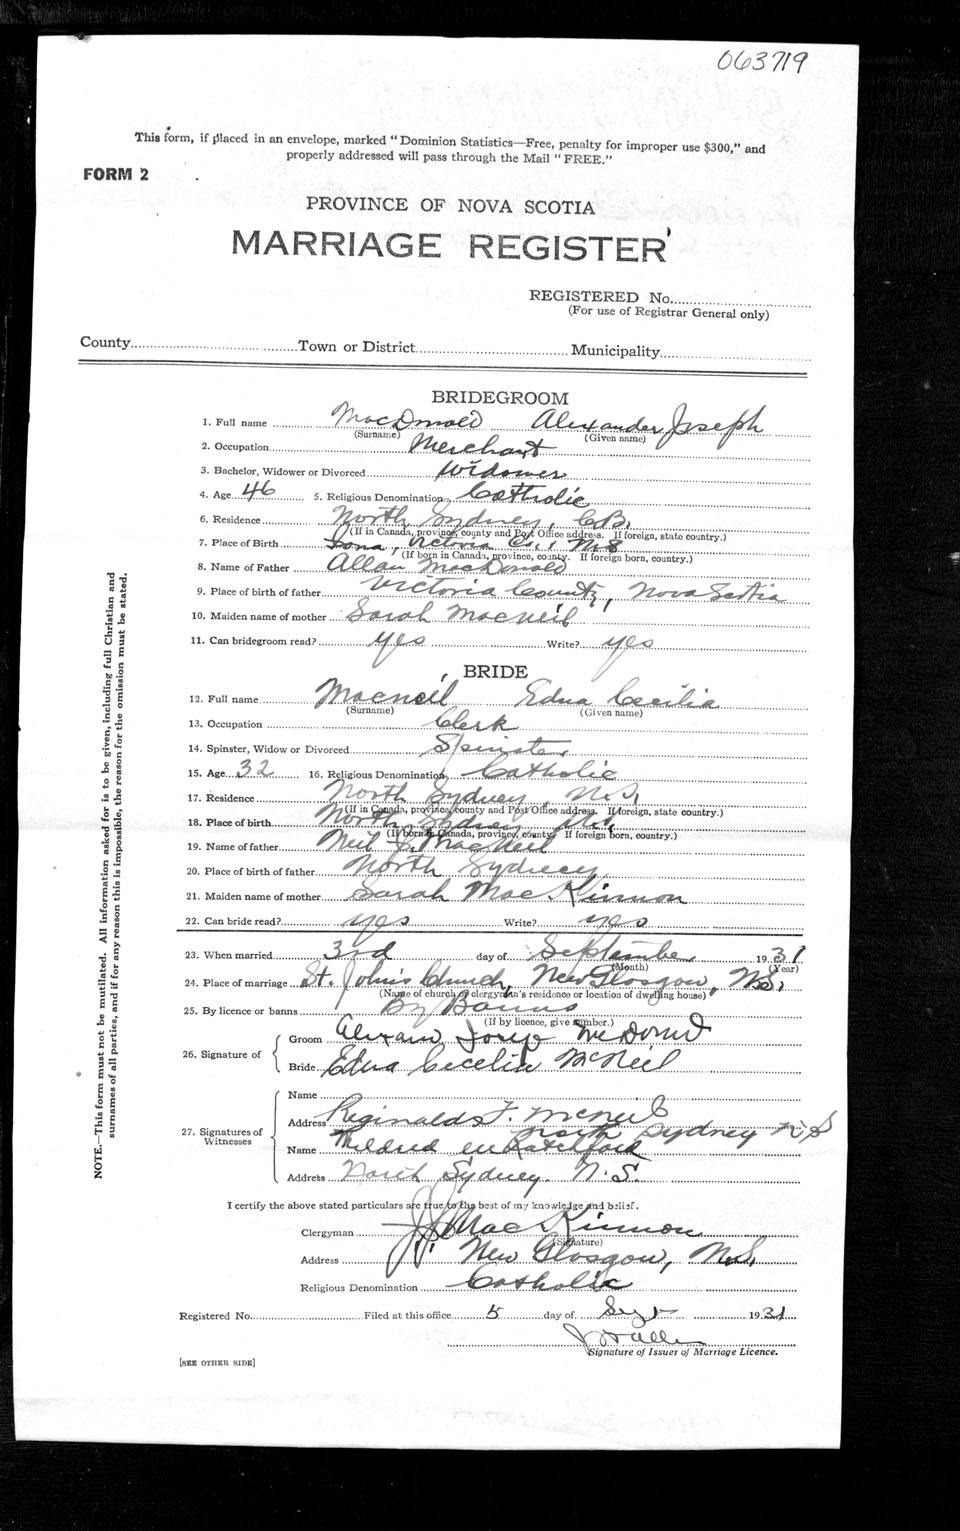 063719
This form, if placed in an envelope, marked "Dominion Statistics—Free, penalty for improper use $300," and
properly addressed will pass through the Mail "FREE."
FORM 2
PROVINCE OF NOVA SCOTIA
MARRIAGE REGISTER
REGISTERED No.
(For use of Registrar General only)
County Town or District Municipality
BRIDEGROOM
1. Full name MacDonald Alexander Joseph
(Surname) (Given name)
2. Occupation Merchant
3. Bachelor, Widower or Divorced Widower
4. Age 46 5. Religious Denomination Catholic
6. Residence North Sydney, C.B.
(If in Canada, province, county and Post Office address. If foreign, state country.)
7. Place of Birth Iona, Victoria Co., N.S
(If born in Canada, province, county. If foreign born, country.)
8. Name of Father Allan MacDonald
9. Place of birth of father Victoria County, Nova Scotia
10. Maiden name of mother Sarah MacNeil
11. Can bridegroom read? yes Write? yes
BRIDE
12. Full name MacNeil Edna Cecilia
(Surname) (Given name)
13. Occupation Clerk
14. Spinster, Widow or Divorced Spinster
15. Age 32 16. Religious Denomination Catholic
17. Residence North Sydney, N.S.
(If in Canada, province, county and Post Office address. If foreign, state country.)
18. Place of birth North Sydney N.S.
(If born in Canada, province, county. If foreign born, country.)
19. Name of father Neil J. MacNeil
20. Place of birth of father North Sydney
21. Maiden name of mother Sarah MacKinnon
22. Can bride read? yes Write? yes
23. When married 3rd day of September 1931
(Month) (Year)
24. Place of marriage St. John's Church, New Glasgow, N.S.
(Name of church or clergyman's residence or location of dwelling house)
25. By licence or banns By Banns
(If by licence, give number.)
26. Signature of
Groom Josep McDonld
Bride Edna Cecelia McNeil
27. Signatures of Witnesses
Name
Address Reginald F. McNeil
North Sydney N.S
Name Mildred Ratchford
Address North Sydney N.S.
I certify the above stated particulars are true to the best of my knowledge and belief.
Clergyman J.J. MacKinnon
(Signature)
Address New Glasgow, N.S.
Religious Denomination Catholic
Registered No. Filed at this office 5 day of Sept 1931
Signature of Issuer of Marriage Licence.
[SEE OTHER SIDE]
NOTE.—This form must not be mutilated. All information asked for is to be given, including full Christian and
surnames of all parties, and if for any reason this is impossible, the reason for the omission must be stated.